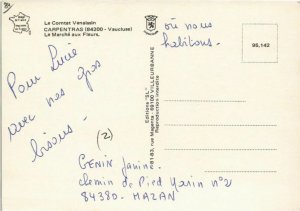 Le Comtat Venaissin
CARPENTRAS (84200 - Vaucluse)
Le Marché aux Fleurs.
où nous
habitons.
96.142
Pour Lucie
avec nos gros
bisous.
(2)
GENIN Janine
chemin de Pied Marin n°2
84380 - MAZAN
Editions "SL"
81-83, rue Magenta - 69100 VILLEURBANNE
Reproduction interdite